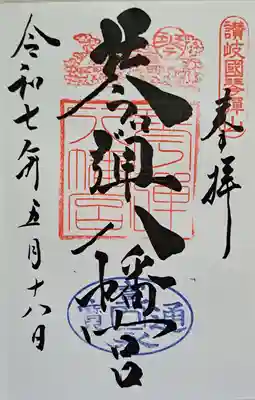 奉拝
讃岐國琴弾山
琴弾八幡宮
令和七年五月十八日